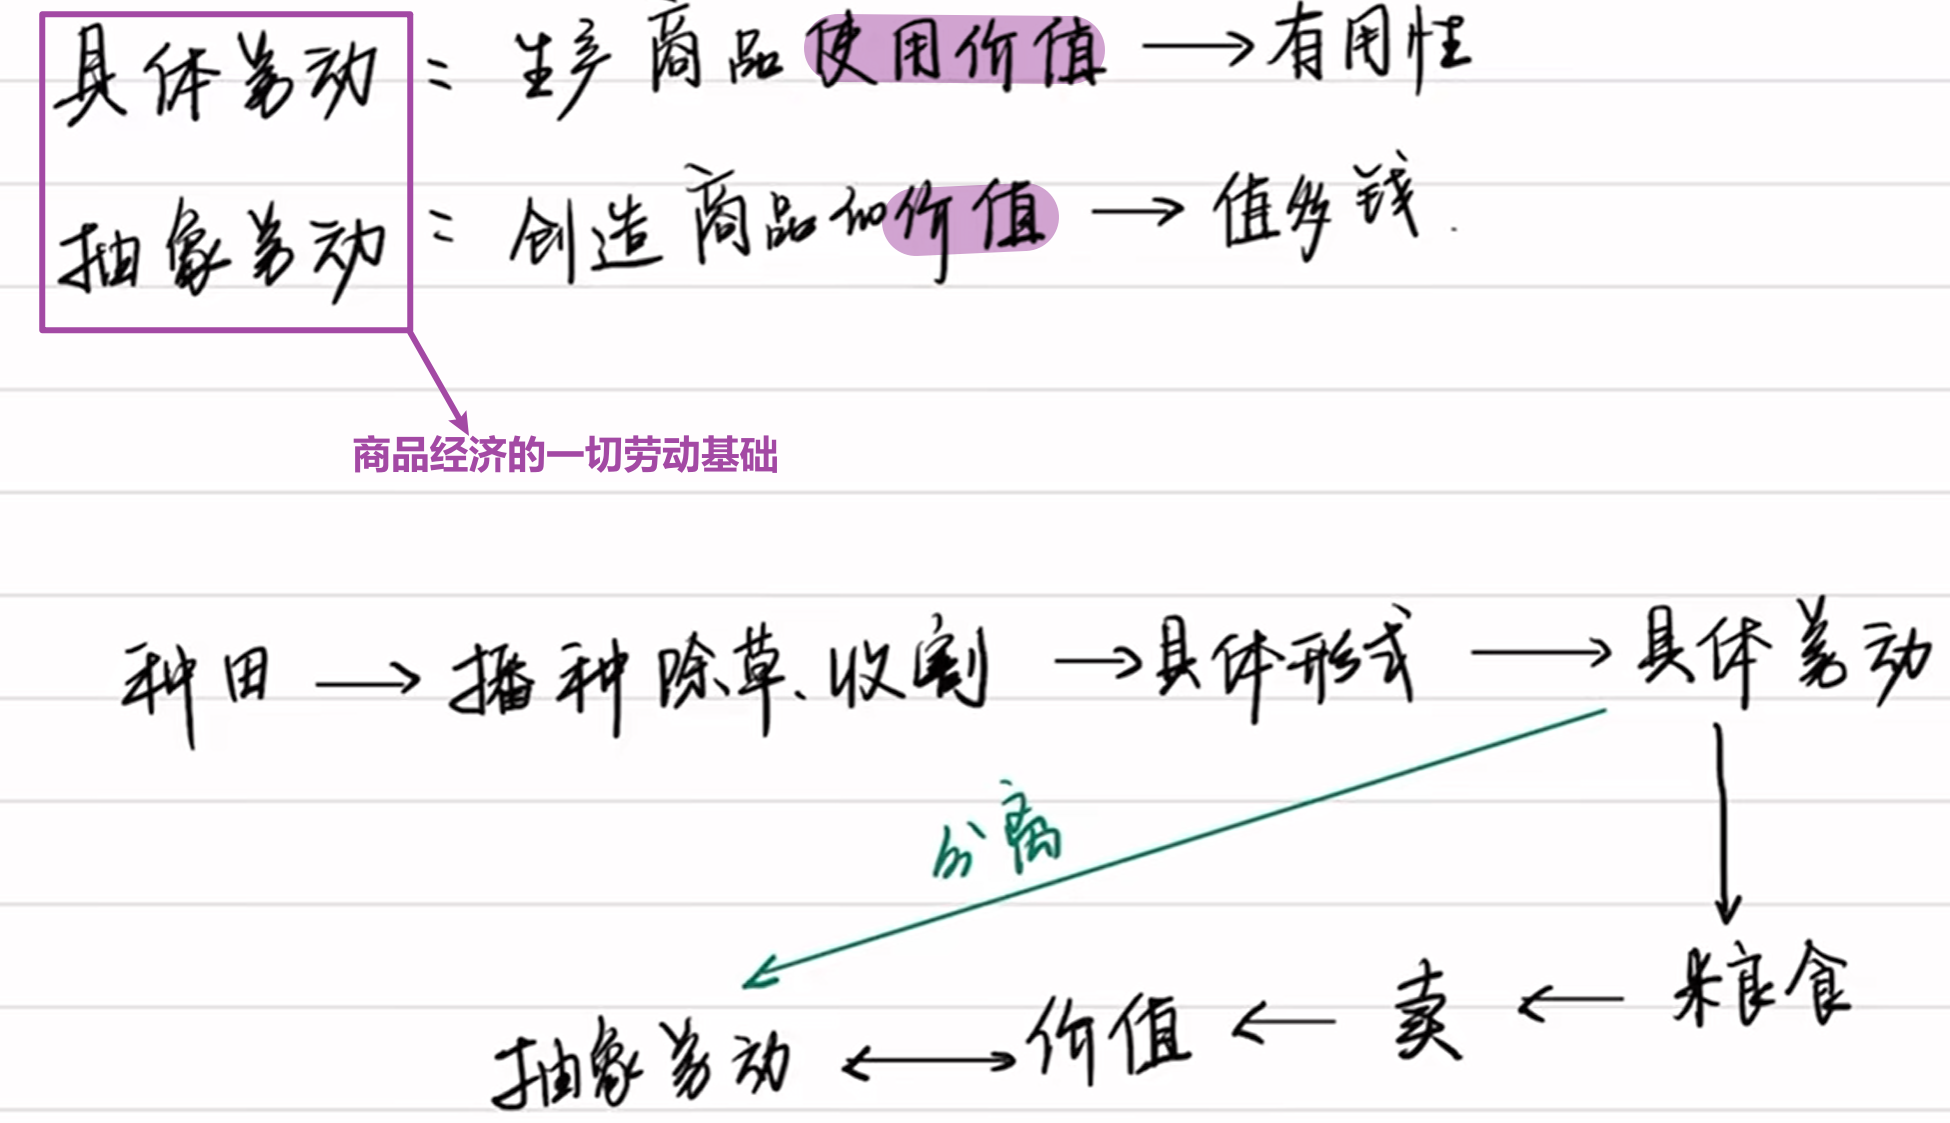 具体劳动 = 生产商品使用价值 → 有用性
抽象劳动 = 创造商品的价值 → 值多钱.
商品经济的一切劳动基础
种田 → 播种除草、收割 → 具体形式 → 具体劳动
分离
抽象劳动 ↔ 价值 ← 卖 ← 粮食